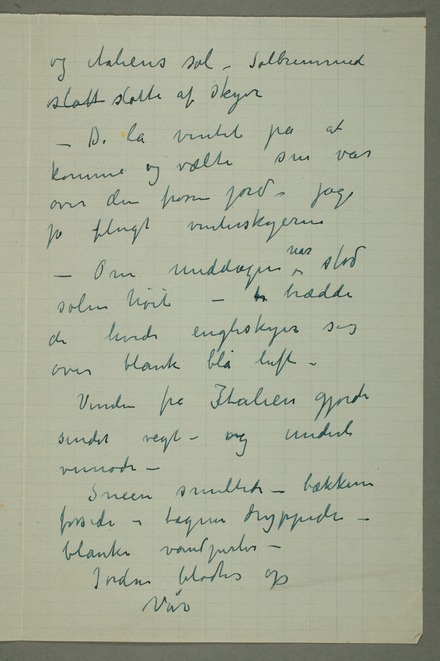 og Italiens sol – Solbrømmed
slott slotte af skyer
– De la ventet på at
komme og vælte sne var
over den frosne jord – jage
på flugt vinterskyerne
– Om middagen når stod
solen høit – bredde
de hvide engleskyer sig
over blank blå luft –
Vinden fra Italien gjorde
sindet vegt – og underlig
vemodig –
Sneen smeltede – bækkene
fossede – tagene dryppede –
blanke vandperler –
Jorden blødtes op
Vår